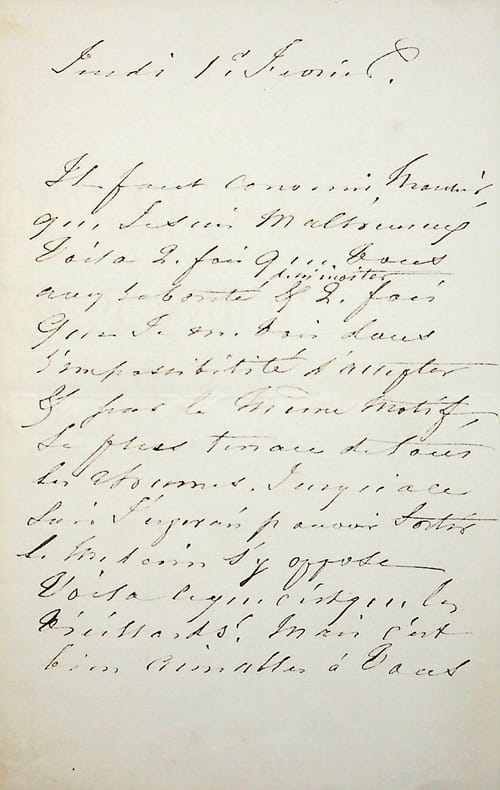 Jeudi 1er Fevrier.
Il faut convenir, Maurice
que Je suis Malheureuse
Voila 2. fois que Vous
avez la bonté de m'inviter & 2. fois
que Je me vois dans
l'impossibilité d'accepter
& par le meme motif,
Le plus tenace de tous
les rhumes. Jusqu'a ce
soir J'esperais pouvoir Sortir
le Medecin s'y oppose
Voila ce que c'est que les
Vieillards! Mais c'est
bien aimable à Vous